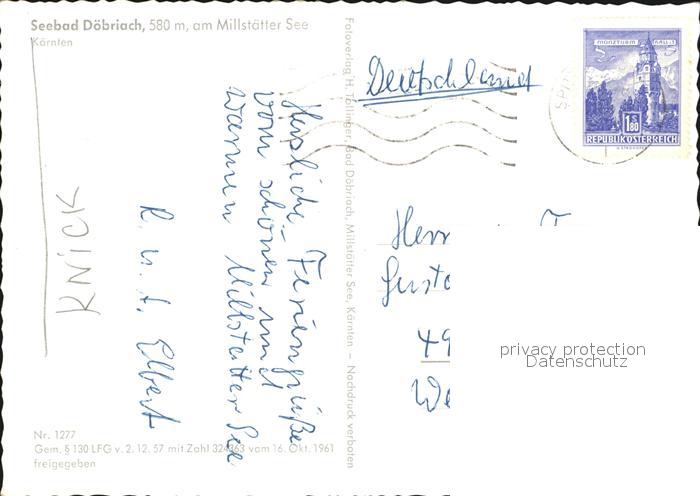 Seebad Döbriach, 580 m, am Millstätter See
Kärnten
Herzliche Feriengrüße
vom schönen und
warmen Millstätter See
R. u. A. Elbert
KNICK
Nr. 1277
Gem. § 130 LFG v. 2. 12. 57 mit Zahl 324363 vom 16. Okt. 1961
freigegeben
Fotoverlag H. Töllinger, Bad Döbriach, Millstätter See, Kärnten – Nachdruck verboten
Deutschland
MÜNZTURM HALL i. T.
S
1.80
REPUBLIK ÖSTERREICH
Herr
49
privacy protection
Datenschutz